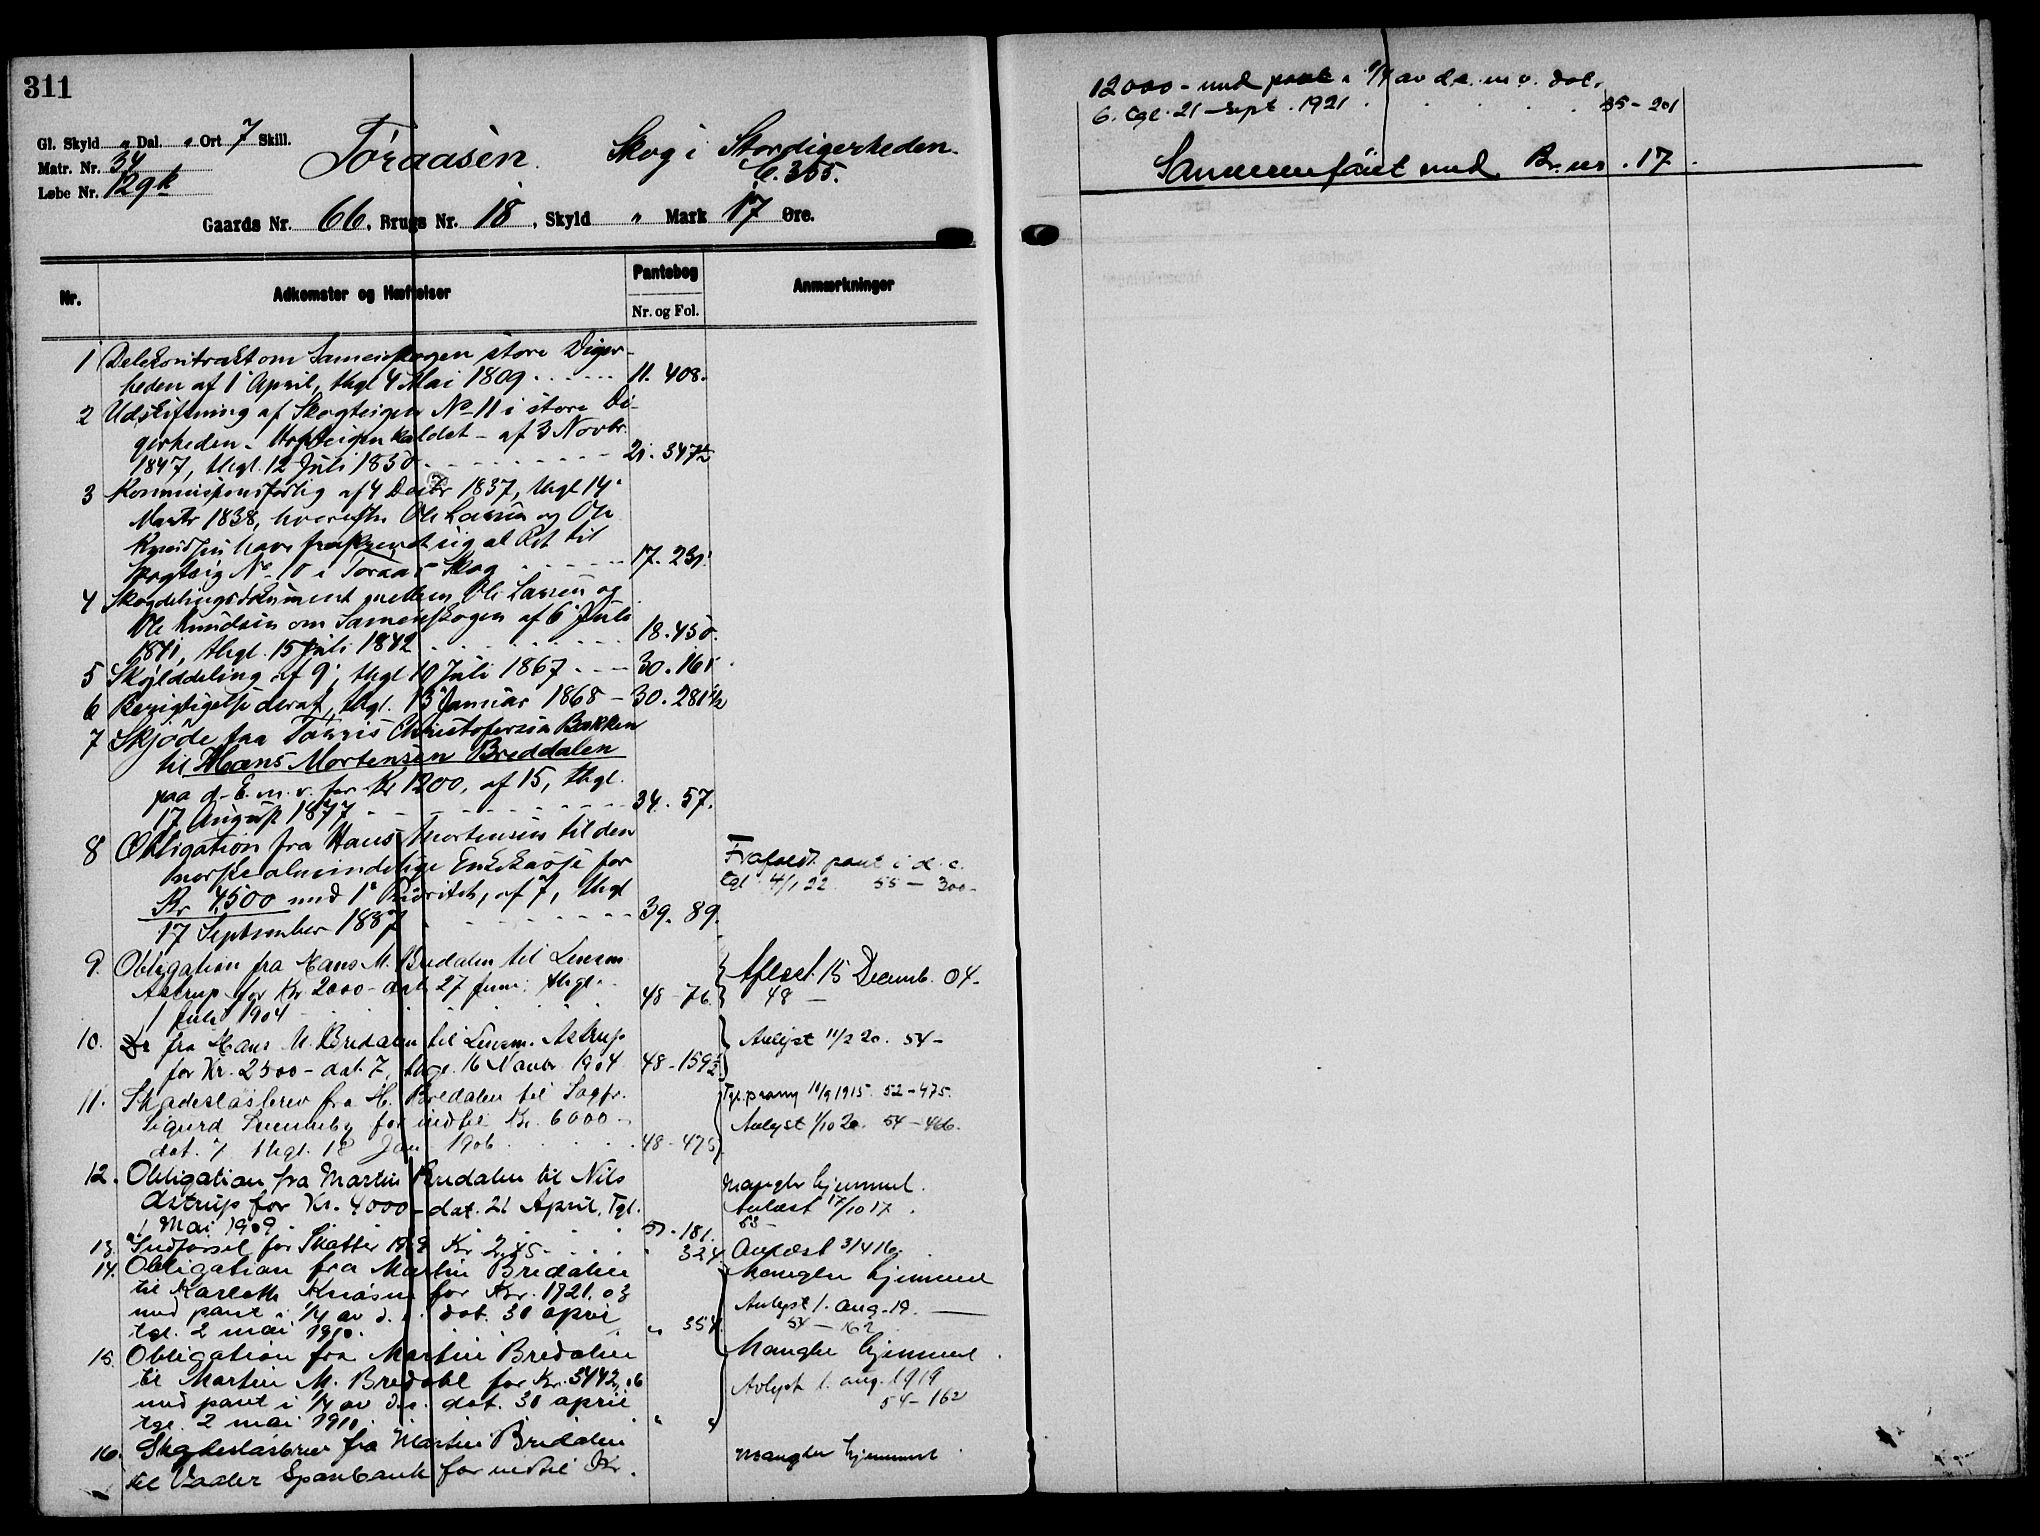 311
Gl. Skyld „ Dal. „ Ort 7 Skill.
Matr. Nr. 34
Løbe Nr. 129k
Toraasen. Skog i Stordigerheden.
C. 355.
Gaards Nr. 66, Brugs Nr. 18, Skyld „ Mark 17 Øre.
Nr. Adkomster og Hæftelser Pantebog Nr. og Fol. Anmærkninger
1 Delekontrakt om Sameieskogen store Diger-
heden af 1 April, thgl 4 Mai 1809 11. 408.
2 Udskiftning af Skogteigen No 11 i store Di-
gerheden kaldet - af 3 Novbr.
1847, thgl. 12 Juli 1850 21. 347½
3 Kommissionsforlig af 4 Decbr 1837, thgl 14
Marts 1838, hvorefter Ole Larsen og Ole
Knudsen have fraskrevet sig al Ret til
Skogteig No 10 i Toraas Skog 17. 231.
4 Skogdelingsdokument mellem Ole Larsen og
Ole Knudsen om Sameieskogen af 6 Juli
1841, thgl. 15 Juli 1842 18. 450.
5 Skylddeling af 9, thgl 10 Juli 1867 30. 161.
6 Berigtigelse deraf, thgl. 13 Januar 1868 - 30. 281½
7 Skjøde fra Christofersen Bakken
til Hans Mortensen Breddalen
paa d. E. m. v. for Kr 1200, af 15, thgl.
17 August 1877 34. 57.
8 Obligation fra Hans Mortensen til den
norske almindelige Enkekasse for
Kr 4500 med 1 Prioritet, af 7, thgl
17 September 1887 39. 89.
Frafaldt pant i d. e.
tgl. 4/1 22. 55 - 300-
9. Obligation fra Hans M. Bredalen til Lensm.
Astrup for Kr. 2000 - dat. 27 Juni, thgl.
1 Juli 1904 48 - 76.
Aflæst 15 Decemb. 04.
48 -
10. Do fra Hans M. Bredalen til Lensm. Astrup
for Kr. 2500 - dat. 7, thgl. 16 Novbr. 1904 48 - 159½
Avlyst 11/2 20. 54 -
11. Skadesløsbrev fra H. Bredalen til Sagfr.
Sigurd for indtil Kr. 6000 -
dat. 7 thgl. 18 Jan 1906 48 - 475
Tgl. 11/9 1915. 52 - 475.
Avlyst 1/10 20. 54 - 466.
12. Obligation fra Martin Bredalen til Nils
Astrup for Kr. 4000 - dat. 21 April, Tgl.
1 Mai 1909 - 181.
Mangler hjemmel.
Avlæst 17/10 17.
53 -
13. Indførsel for Skatter Kr 2.45 - " 324
3/4 16.
14. Obligation fra Martin Bredalen
til for Kr. 1721.03
med pant i 1/4 av d. e. dat. 30 april
tgl. 2 mai 1910. " 354.
Mangler hjemmel
Avlyst 1. aug. 19.
54 - 162
15. Obligation fra Martin Bredalen
til Martin M. Bredahl for Kr. 3442,06
med pant i 1/4 av d. e. dat. 30 april
tgl. 2 mai 1910. " "
Mangler hjemmel.
Avlyst 1. aug. 1919
54 - 162
16. Skadesløsbrev fra Martin Bredalen
til Vaaler Sparebank for indtil Kr.
mangler hjemmel
12000 - med pant i 1/4 av d. e. m. v. dat.
6. tgl. 21 - sept. 1921 55 - 201
Sammenføiet med Br. nr. 17.